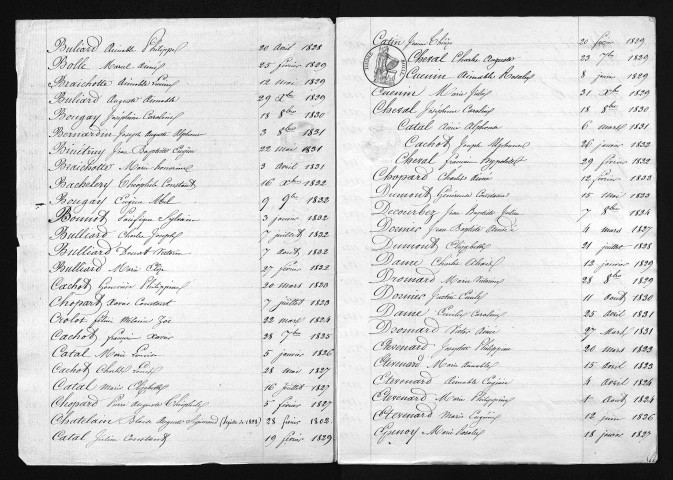 Buliard Aimable Philippe 20 avril 1828
Bolle Marcel 25 février 1829
Braichotte Aimable 12 mai 1829
Buliard Auguste Aimable 29 Xbre 1829
Bougay Joséphine Caroline 18 8bre 1830
Bernardin Joseph Auguste Alphonse 3 8bre 1831
Jean Baptiste Eugène 22 mai 1831
Braichotte Marie 3 avril 1831
Bachelery Théophile Constant 16 Xbre 1832
Bougay Eugène Abel 9 9bre 1832
Bonnot Pacifique Sylvain 3 janvier 1832
Bulliard Charles Joseph 7 juillet 1822
Bulliard 7 août 1832
Bulliard Marie Elize 27 février 1822
Cachot Généreuse Philippine 20 mars 1823
Chopart Xavier Constant 7 juillet 1823
Crolot Mélanie Zoé 22 mars 1824
Cachot François Xavier 28 7bre 1825
Catal Marie Louise 5 janvier 1826
Cachot Charles 28 mai 1827
Catal Marie Elizabeth 16 juillet 1827
Chopard Pierre Auguste Théophile 5 février 1827
Chatelain Auguste 28 février 1802
Catal Julien Constant 19 février 1829
Catin Jeanne 20 1829
Cheval Charles Auguste 23 7bre 1829
Cuenin Aimable Rosalie 8 juin 1829
Cuenin Marie Julie 31 Xbre 1829
Cheval Joséphine Caroline 18 8bre 1830
Catal Marie Alphonse 6 mars 1831
Cachot Joseph Alphonse 26 janvier 1832
Cheval François Hyppolite 29 février 1832
Chopard Charles Aimé 12 février 1833
Dumont Généreuse Constance 15 mai 1823
Decourbez Jean Baptiste Julien 7 8bre 1824
Dornier Jean Baptiste 4 mars 1827
Dumont Elizabeth 21 juillet 1828
Dame Charles 12 janvier 1829
Dromard Marie 28 8bre 1829
Dornier Justin Emile 11 août 1830
Dame Emilie Caroline 25 avril 1831
Dromard Victor Aimé 27 mars 1831
Etevenard Josephte Philippine 20 mars 1822
Etevenard Marie Aimable 15 avril 1823
Etevenard Aimable Eugénie 4 avril 1824
Etevenard Marie Philippine 1 août 1824
Etevenard Marie Eugénie 12 juin 1826
Marie Rosalie 18 janvier 1827